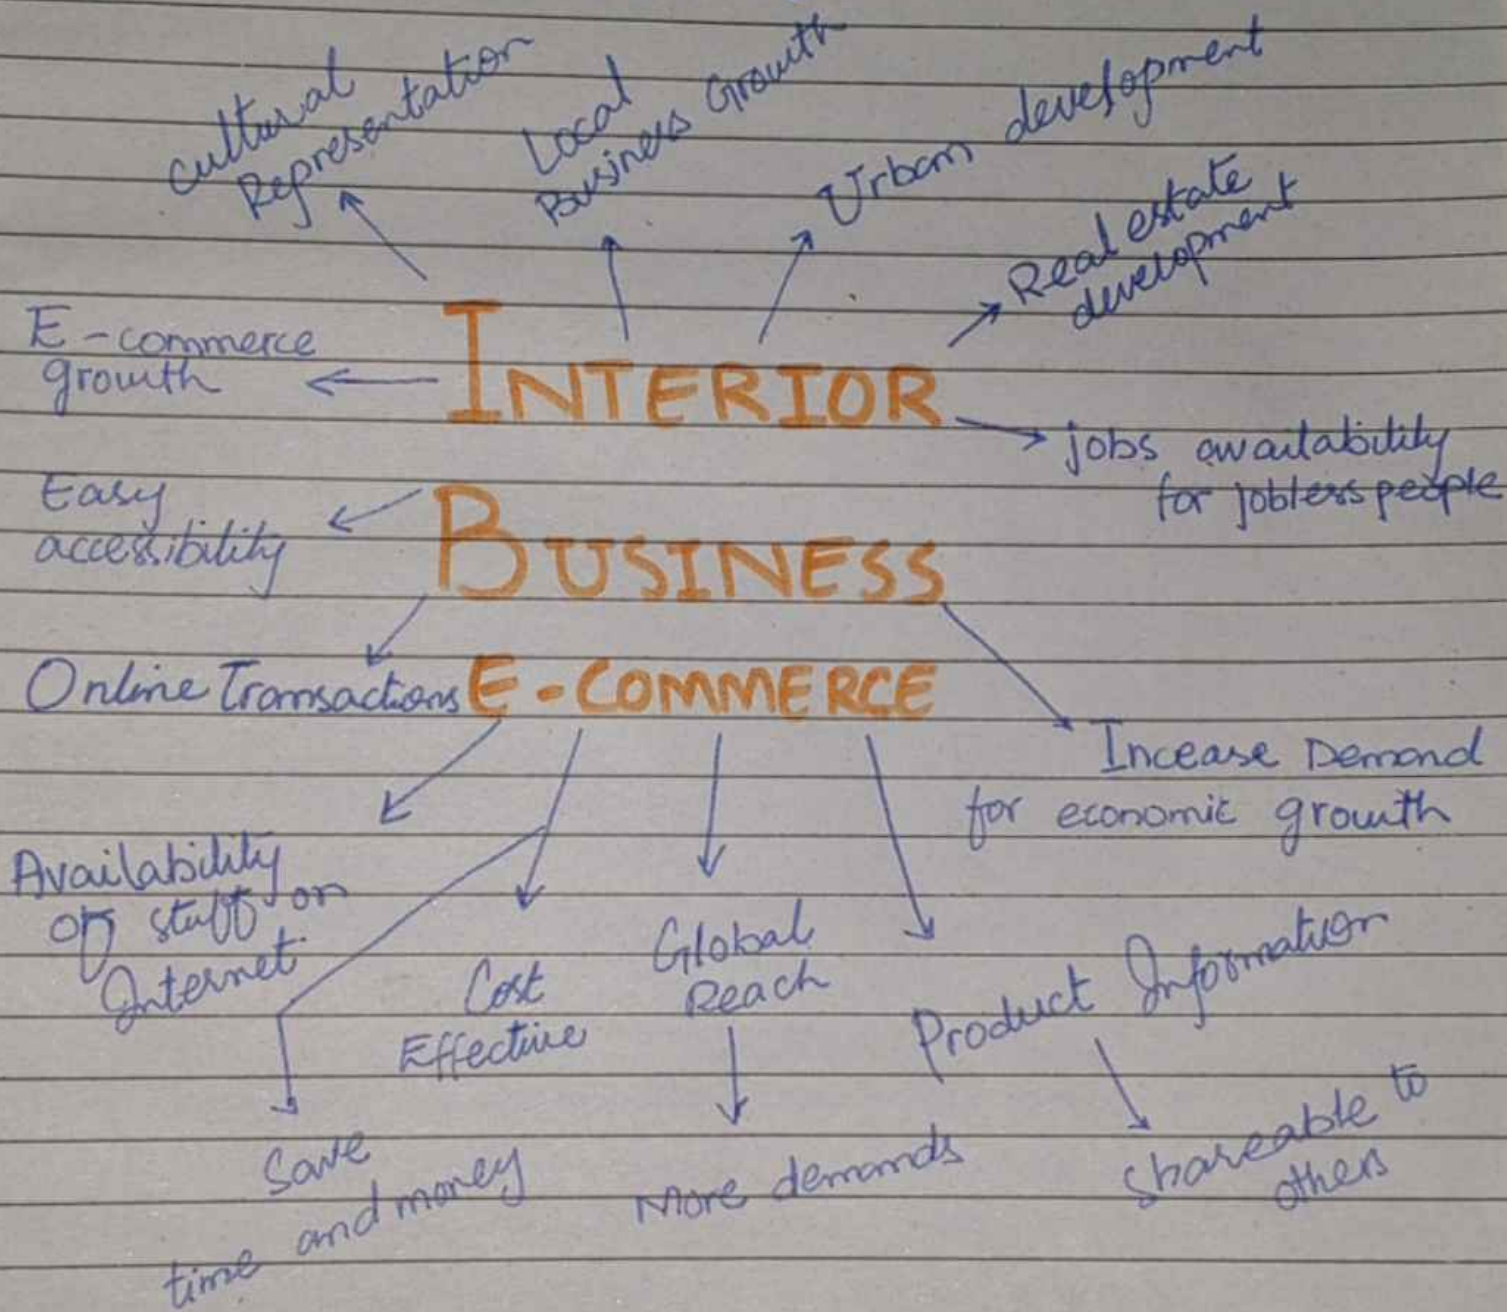 cultural
Representation
Local
Business Growth
Urban development
Real estate
development
E-commerce
growth
INTERIOR
jobs availability
for jobless people
Easy
accessibility
BUSINESS
Online Transactions
E-COMMERCE
Incease Demand
for economic growth
Availability
of stuff on
Internet
Cost
Effective
Global
Reach
Product Information
Save
time and money
More demands
Shareable to
others